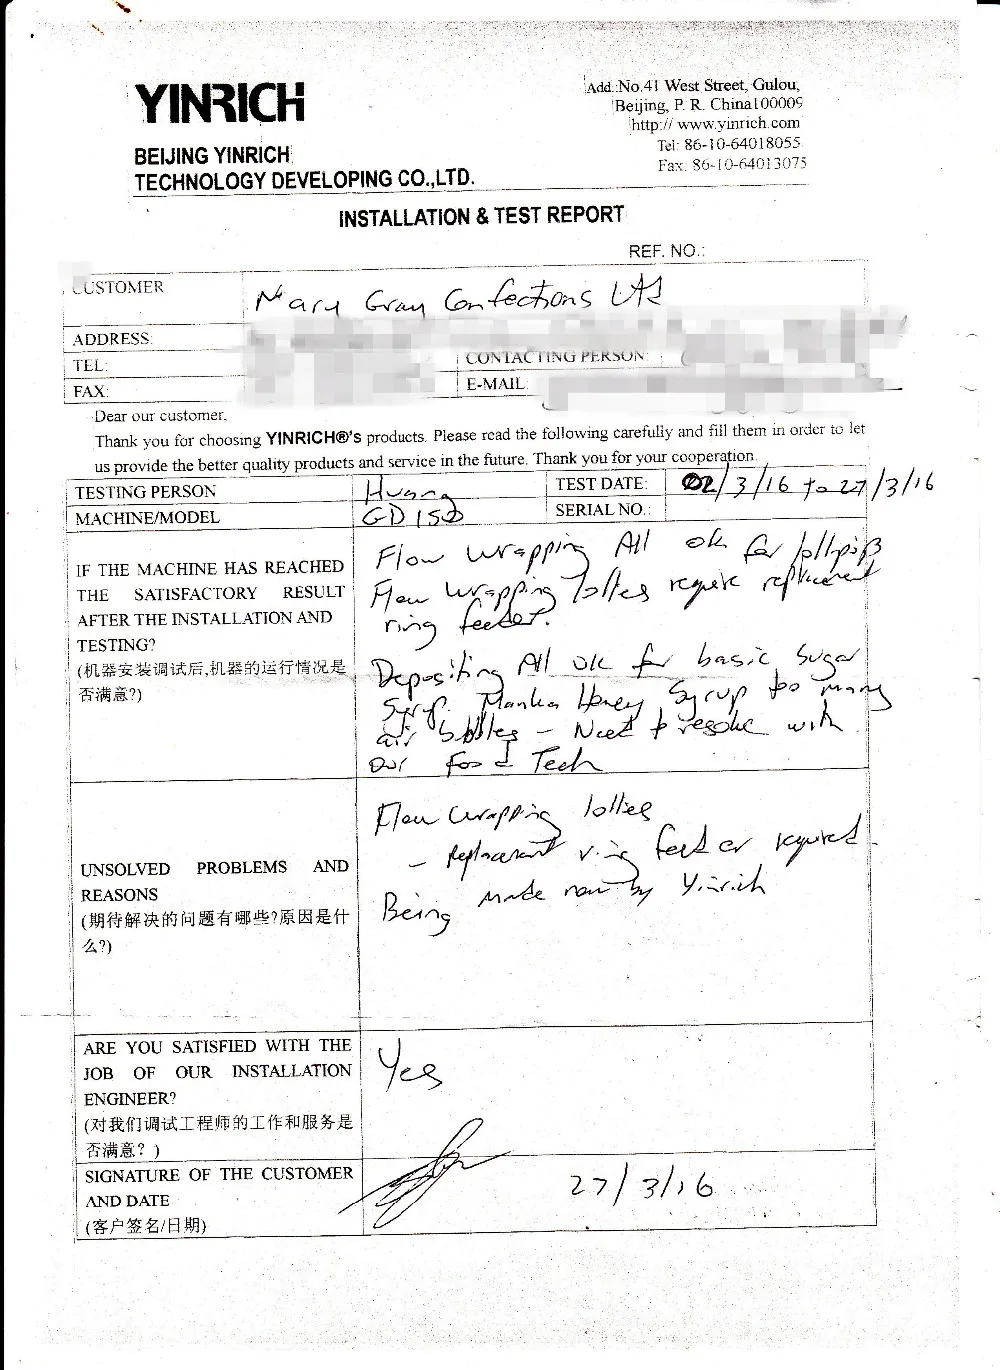 YINRICH
BEIJING YINRICH
TECHNOLOGY DEVELOPING CO.,LTD.
Add.:No.41 West Street, Gulou,
Beijing, P. R. China100009
http:// www.yinrich.com
Tel: 86-10-64018055
Fax: 86-10-64013075
INSTALLATION & TEST REPORT
REF. NO.:
CUSTOMER
Mary Gray Confections Ltd
ADDRESS:
TEL:
CONTACTING PERSON:
FAX:
E-MAIL:
Dear our customer,
Thank you for choosing YINRICH®'S products. Please read the following carefully and fill them in order to let
us provide the better quality products and service in the future. Thank you for your cooperation.
TESTING PERSON
Huang
TEST DATE:
02/3/16 to 27/3/16
MACHINE/MODEL
GD150
SERIAL NO.:
IF THE MACHINE HAS REACHED
THE SATISFACTORY RESULT
AFTER THE INSTALLATION AND
TESTING?
(机器安装调试后,机器的运行情况是
否满意?)
Flow wrapping All ok for lollipops
Flow wrapping lollies require replacement
ring feeder.
Depositing All ok for basic sugar
Syrup. Manuka Honey Syrup too many
air bubbles - Need to resolve with
our Food Tech
UNSOLVED PROBLEMS AND
REASONS
(期待解决的问题有哪些?原因是什
么?)
Flow wrapping lollies
- Replacement ring feeder required.
Being made now by Yinrich
ARE YOU SATISFIED WITH THE
JOB OF OUR INSTALLATION
ENGINEER?
(对我们调试工程师的工作和服务是
否满意? )
Yes
SIGNATURE OF THE CUSTOMER
AND DATE
(客户签名/日期)
27/3/16